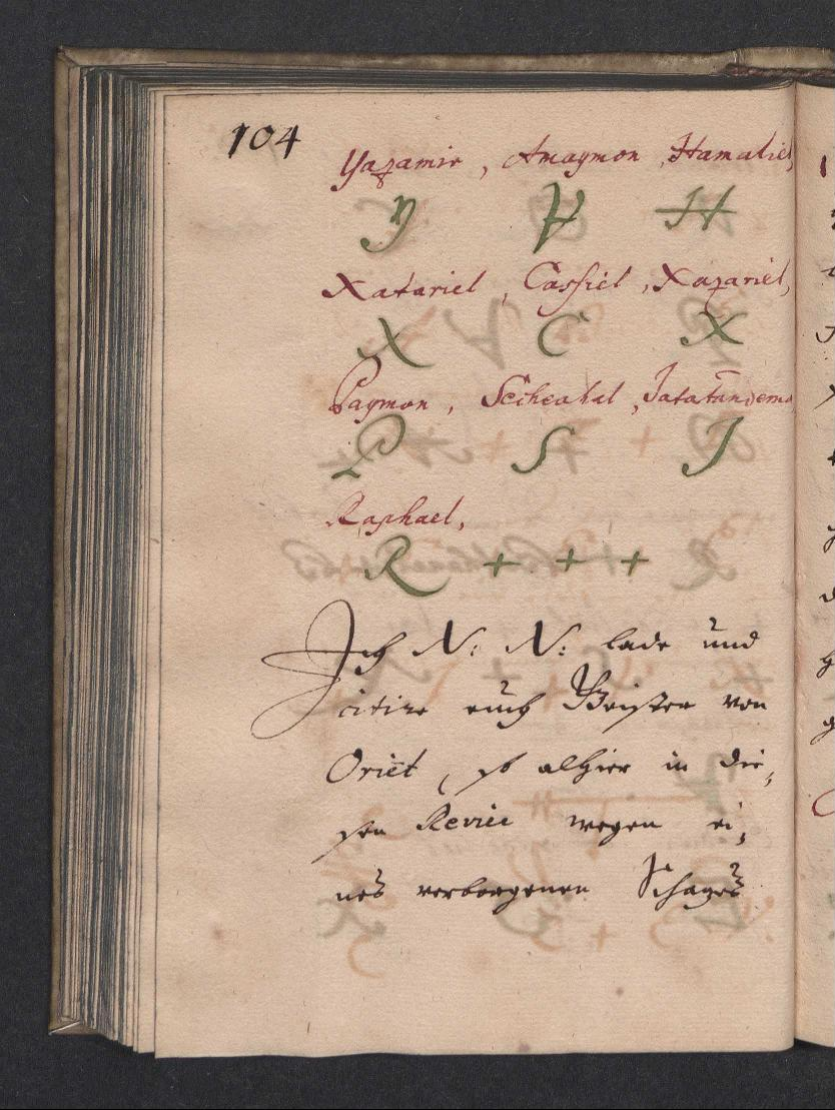 104
Yazamir, Amaymon, Hamaliel,
Y A H
Xatariel, Cassiel, Xazariel,
X C X
Paymon, Scheahal, Jatatandema
P S J
Raphael,
R + + +
Ich N: N: lade und
citire euch Geister von
Oriet, so alhier in die,
sen Revier wegen ei,
nes verborgenen Schazes